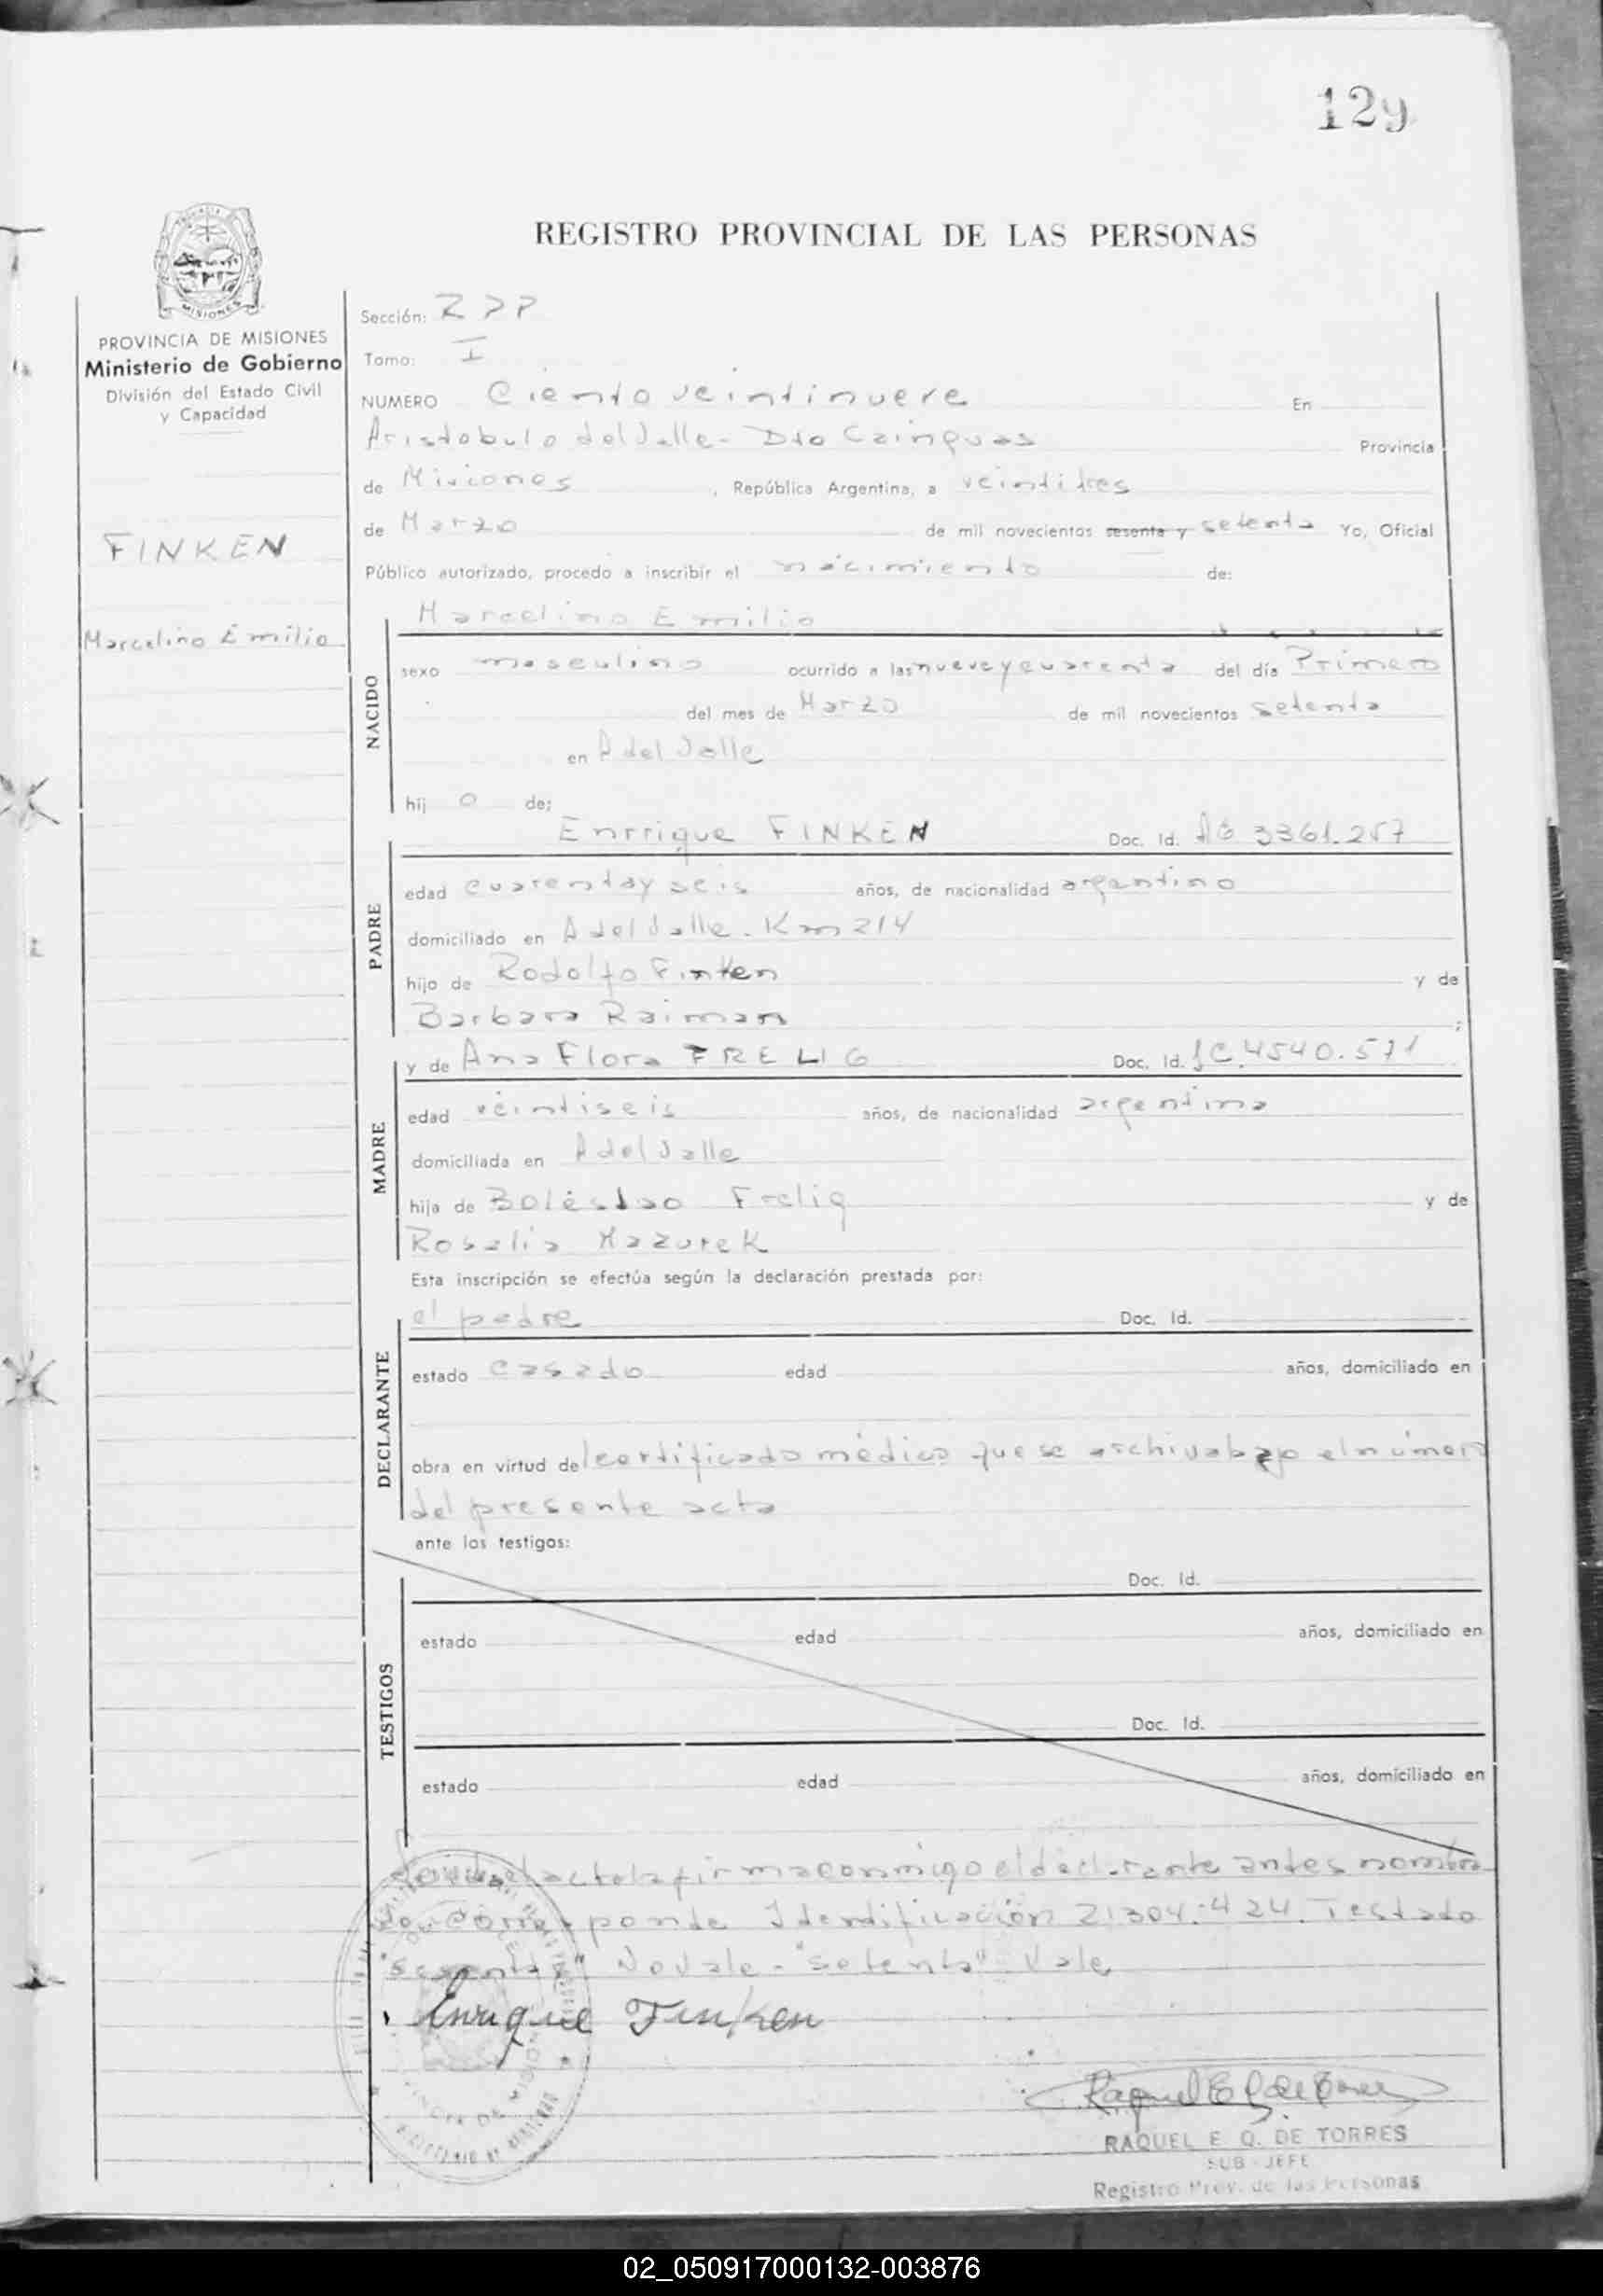 129
REGISTRO PROVINCIAL DE LAS PERSONAS
MISIONES
PROVINCIA DE MISIONES
Ministerio de Gobierno
División del Estado Civil
y Capacidad
FINKEN
Marcelino Emilio
Sección: RPP
Tomo: I
NUMERO Ciento veintinueve En
Aristobulo del Valle - Dto Cainguas Provincia
de Misiones, República Argentina, a veintitres
de Marzo de mil novecientos sesenta y setenta Yo, Oficial
Público autorizado, procedo a inscribir el nacimiento de:
Marcelino Emilio
NACIDO
sexo masculino ocurrido a las nueve y cuarenta del día Primero
del mes de Marzo de mil novecientos setenta
en A del Valle
hij o de;
PADRE
Enrrique FINKEN Doc. Id. 3361.257
edad cuarenta y seis años, de nacionalidad argentino
domiciliado en A del Valle - Km 214
hijo de Rodolfo Finken y de
Barbara Raiman ;
MADRE
y de Ana Flora FRELIG Doc. Id. 4540.571
edad veintiseis años, de nacionalidad argentina
domiciliada en A del Valle
hija de Bolèslao Frelig y de
Rosalia Mazurek
Esta inscripción se efectúa según la declaración prestada por:
DECLARANTE
el padre Doc. Id.
estado casado edad años, domiciliado en
obra en virtud del certificado médico que se archiva bajo el número
del presente acta
ante los testigos:
TESTIGOS
Doc. Id.
estado edad años, domiciliado en
Doc. Id.
estado edad años, domiciliado en
el acta la firma conmigo el declarante antes nombra
do. Corresponde Identificación 21304.424. Testado
"sesenta y" No vale - "setenta" Vale
Enrique Finken
RAQUEL E. Q. DE TORRES
SUB-JEFE
Registro Prov. de las Personas
02_050917000132-003876